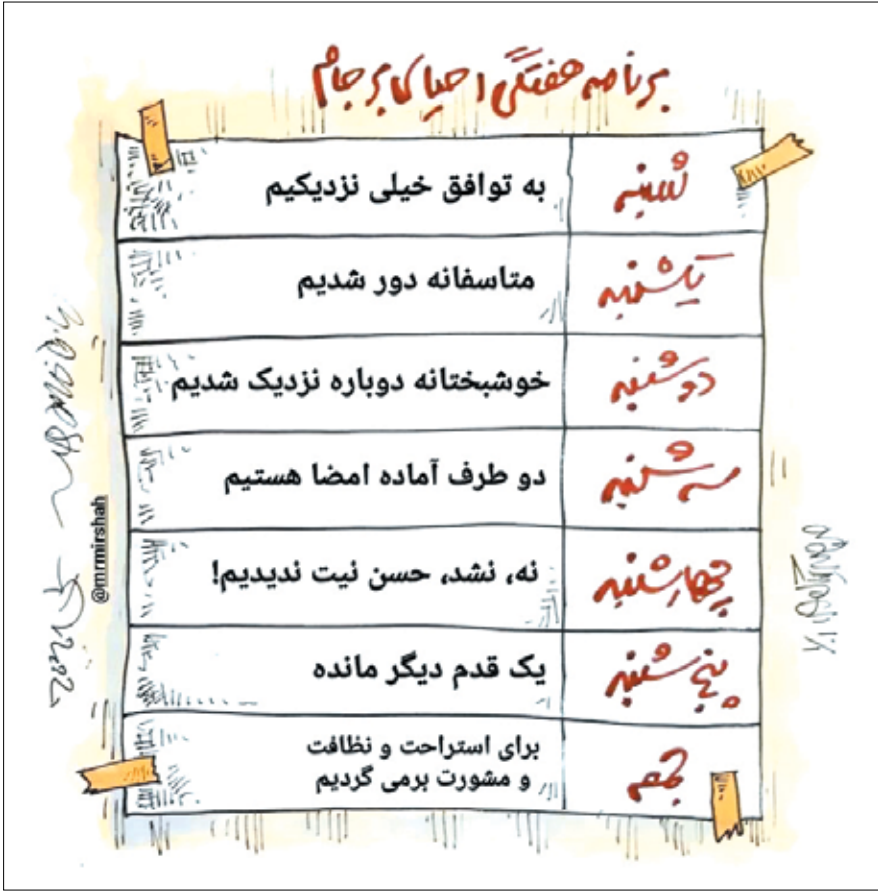 برنامه هفتگی احیای برجام
شنبه
به توافق خیلی نزدیکیم
یکشنبه
متاسفانه دور شدیم
دوشنبه
خوشبختانه دوباره نزدیک شدیم
سه شنبه
دو طرف آماده امضا هستیم
چهارشنبه
نه، نشد، حسن نیت ندیدیم!
پنج شنبه
یک قدم دیگر مانده
جمعه
برای استراحت و نظافت
و مشورت برمی گردیم
@mrmirshah